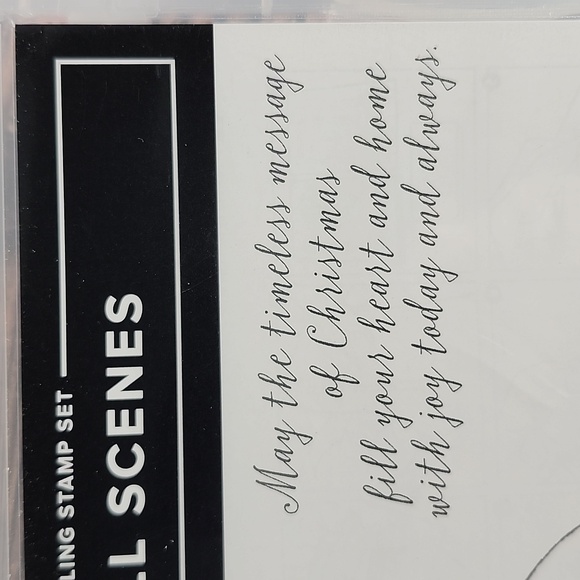 LING STAMP SET
LL SCENES
May the timeless message
of Christmas
fill your heart and home
with joy today and always.